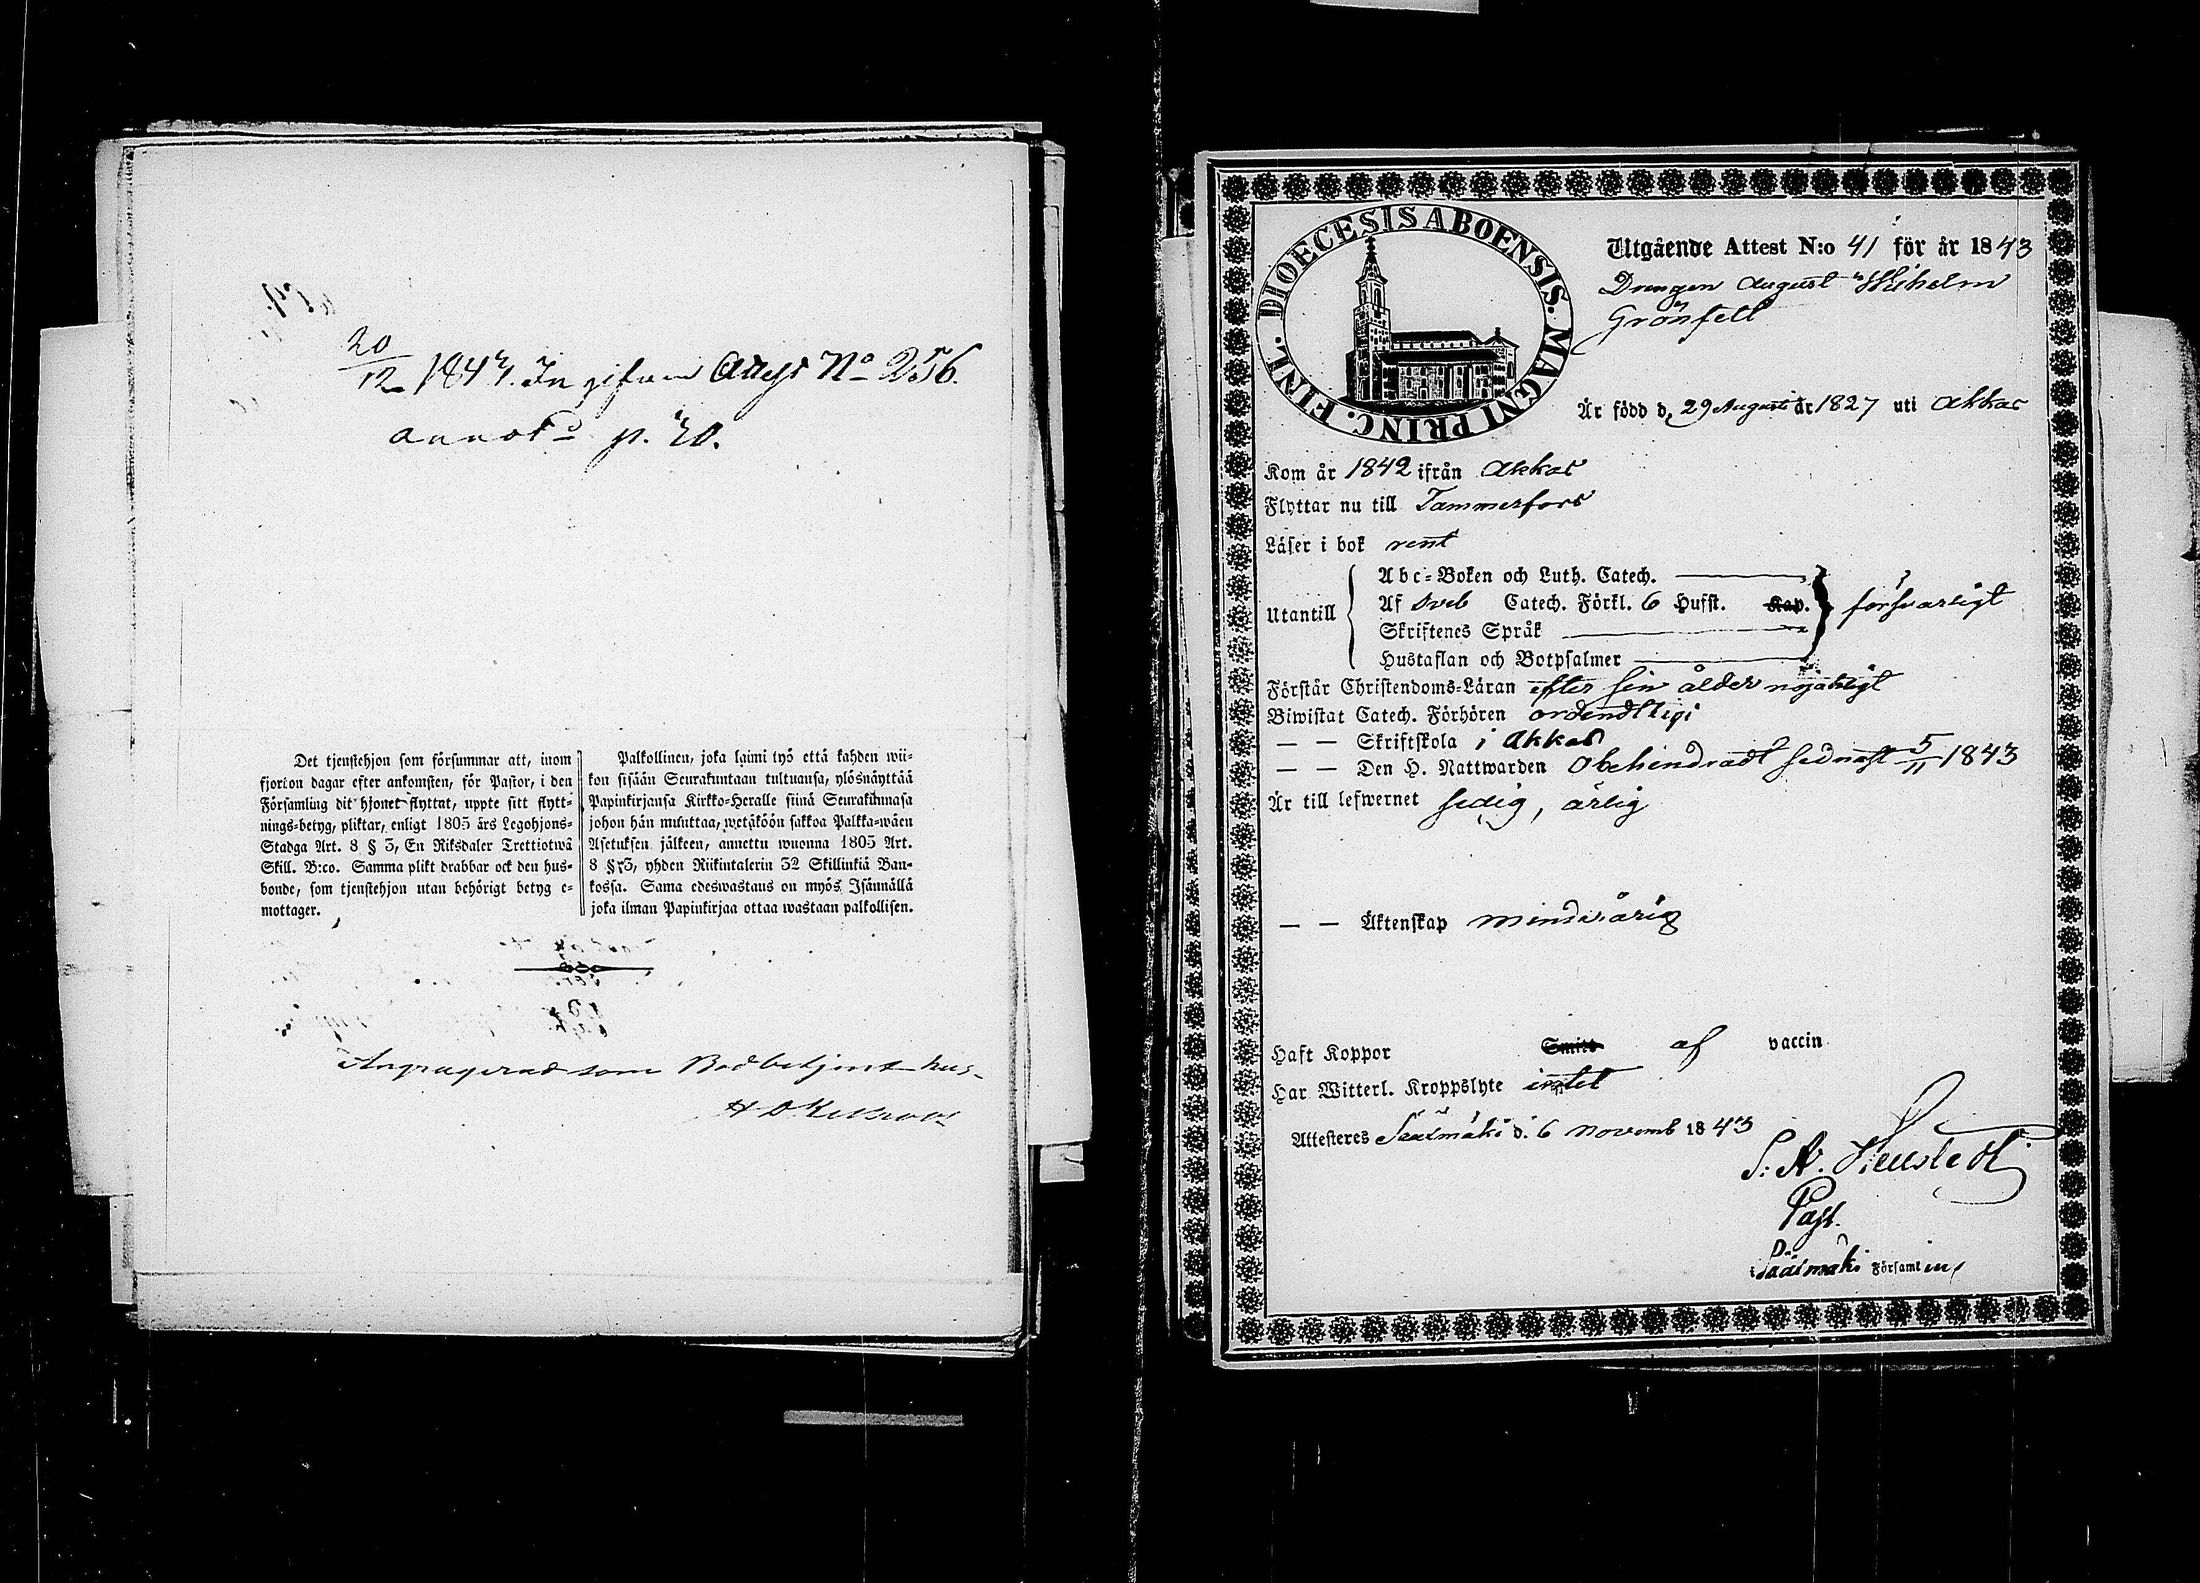 20/12 1843. Ingifven Attest No 256.
annoterad p. 20.
Det tjenstehjon som försummar att, inom
fjorton dagar efter ankomsten, för Pastor, i den
Församling dit hjonet flyttat, uppte sitt flytt-
nings-betyg, pliktar, enligt 1805 års Legohjons-
Stadga Art. 8 § 3, En Riksdaler Trettiotwå
Skill. B:co. Samma plikt drabbar ock den hus-
bonde, som tjenstehjon utan behörigt betyg e-
mottager.
Palkollinen, joka laimi lyö että kahden wii-
kon sisään Seurakuntaan tultuansa, ylösnäyttää
Papinkirjansa Kirkko-Heralle siinä Seurakunnasa
johon hän muuttaa, wetäköön sakkoa Palkka-wäen
Asetuksen jälkeen, annettu wuonna 1805 Art.
8 § 3, yhden Riikintalerin 32 Skillinkiä Ban-
kossa. Sama edeswastaus on myös Isännällä
joka ilman Papinkirjaa ottaa wastaan palkollisen.
som Bodbetjent hus
DIOECESIS ABOENSIS. MAGNI PRINC. FINL.
Utgående Attest N:o 41 för år 1843
Drengen August Wilhelm
Grönfelt
Är född d. 29 Augusti år 1827 uti Akkas
Kom år 1842 ifrån Akkas
Flyttar nu till Tammerfors
Läser i bok rent
Utantill
Abc-Boken och Luth. Catech.
Af Sveb Catech. Förkl. 6 Hufst. Kap. försvarligt
Skriftenes Språk
Hustaflan och Botpsalmer
Förstår Christendoms-Läran efter sin ålder nöjaktigt
Biwistat Catech. Förhören ordendtligt
— — Skriftskola i Akkas
— — Den H. Nattwarden obehindradt sednast 5/11 1843
Är till lefwernet sedig, ärlig
— — Äktenskap minderårig
Haft Koppor Smitt af vaccin
Har Witterl. Kroppslyte intet
Attesteres Sääxmäki d. 6 Novemb 1843
S. A.
Past.
i Sääxmäki Församling